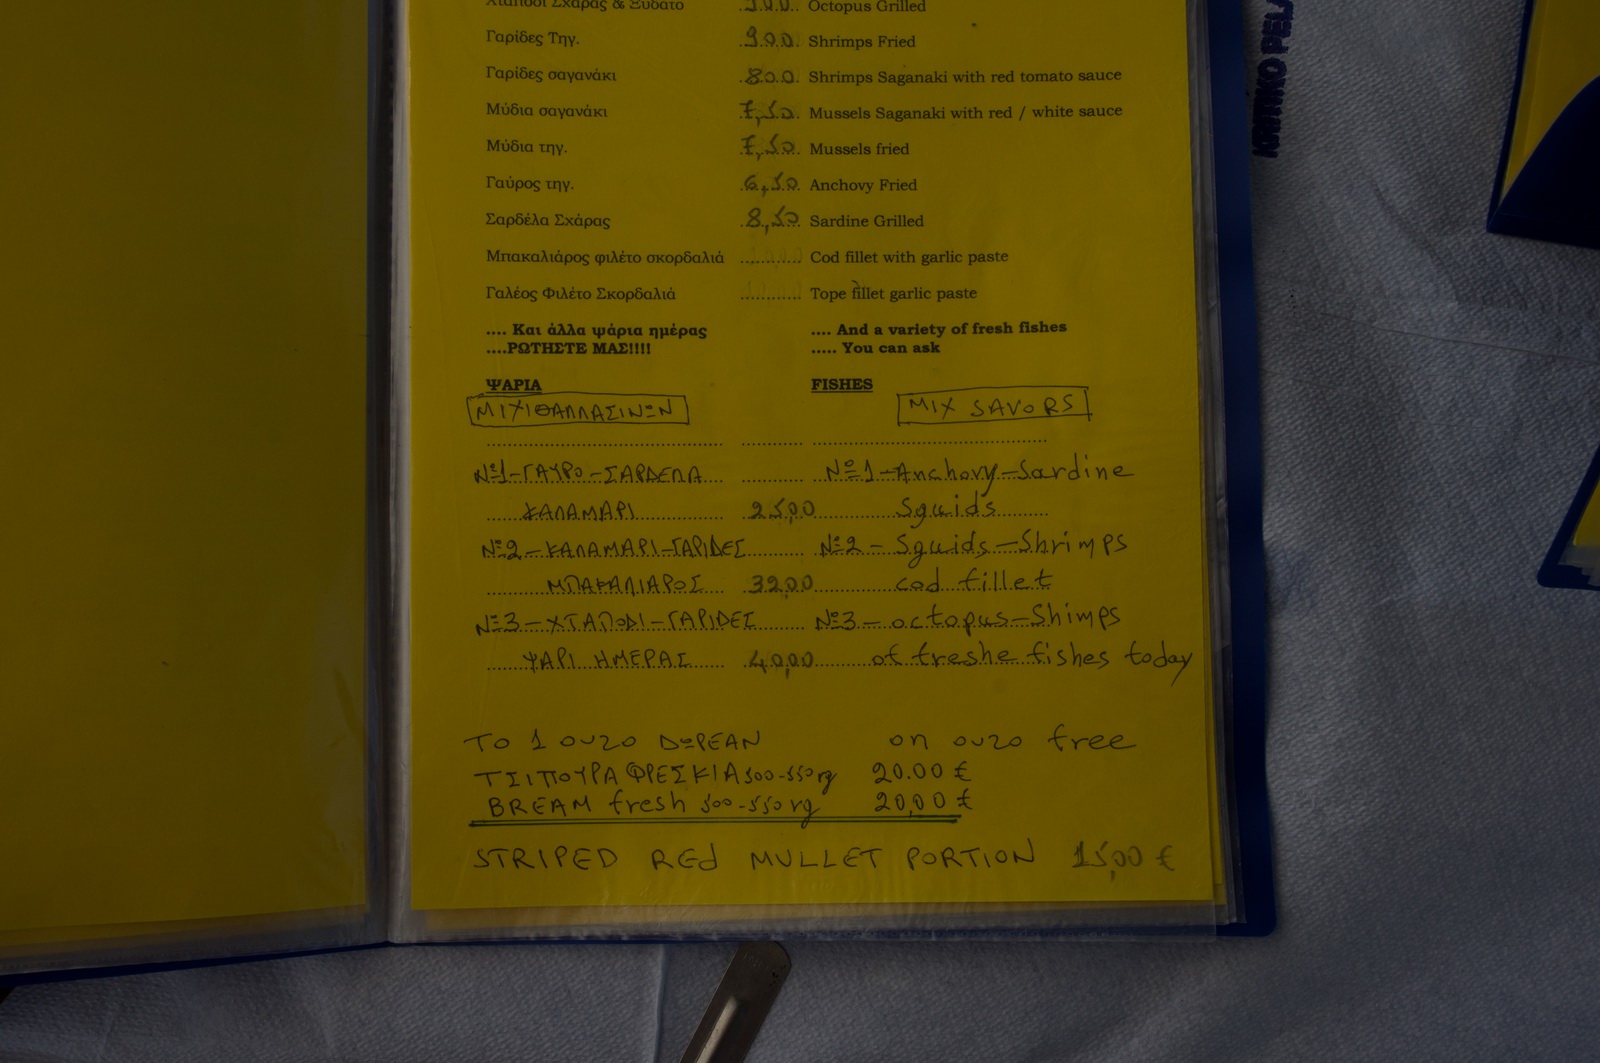 Χταπόδι Σχάρας & Ξυδάτο Octopus Grilled
Γαρίδες Τηγ. 9.00. Shrimps Fried
Γαρίδες σαγανάκι .8.00. Shrimps Saganaki with red tomato sauce
Μύδια σαγανάκι 7,50. Mussels Saganaki with red / white sauce
Μύδια τηγ. 7,50. Mussels fried
Γαύρος τηγ. .6,50. Anchovy Fried
Σαρδέλα Σχάρας .8,50. Sardine Grilled
Μπακαλιάρος φιλέτο σκορδαλιά ........... Cod fillet with garlic paste
Γαλέος Φιλέτο Σκορδαλιά ........... Tope fillet garlic paste
.... Και άλλα ψάρια ημέρας .... And a variety of fresh fishes
....ΡΩΤΗΣΤΕ ΜΑΣ!!!! ..... You can ask
ΨΑΡΙΑ FISHES
ΜΙΧΙΘΑΛΛΑΣΙΝΩΝ MIX SAVORS
Nº1-ΓΑΥΡΟ-ΣΑΡΔΕΛΑ Nº1-Anchovy-Sardine
ΚΑΛΑΜΑΡΙ 25,00 Sguids
Nº2-ΚΑΛΑΜΑΡΙ-ΓΑΡΙΔΕΣ Nº2-Sguids-Shrimps
ΜΠΑΚΑΛΙΑΡΟΣ 32,00 cod fillet
Nº3-ΧΤΑΠΟΔΙ-ΓΑΡΙΔΕΣ Nº3-octopus-Shimps
ΨΑΡΙ ΗΜΕΡΑΣ 40,00 of freshe fishes today
ΤΟ 1 ουζο ΔΩΡΕΑΝ on ουζο free
ΤΣΙΠΟΥΡΑ ΦΡΕΣΚΙΑ 500-550 rg 20.00 €
BREAM fresh 500-550 rg 20,00 €
STRIPED REd MULLET PORTION 15,00 €